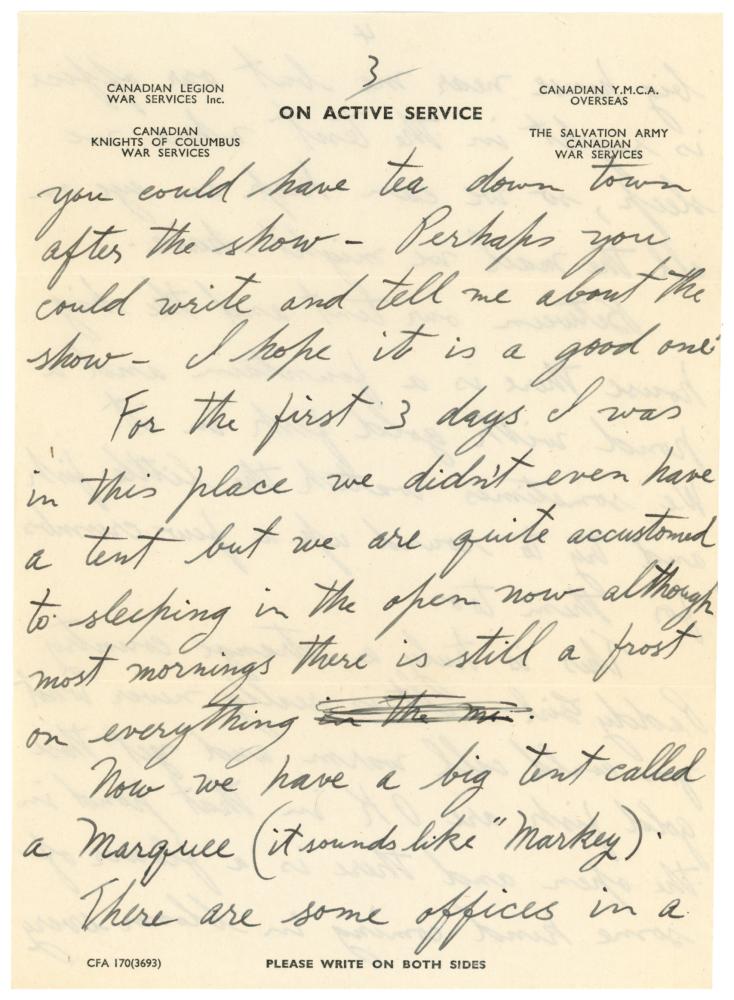 3
CANADIAN LEGION
WAR SERVICES Inc.
CANADIAN
KNIGHTS OF COLUMBUS
WAR SERVICES
ON ACTIVE SERVICE
CANADIAN Y.M.C.A.
OVERSEAS
THE SALVATION ARMY
CANADIAN
WAR SERVICES
you could have tea down town
after the show - Perhaps you
could write and tell me about the
show - I hope it is a good one.
For the first 3 days I was
in this place we didn't even have
a tent but we are quite accustomed
to sleeping in the open now although
most mornings there is still a frost
on everything in the mi.
Now we have a big tent called
a Marquee (it sounds like "Markey).
There are some offices in a
CFA 170(3693)
PLEASE WRITE ON BOTH SIDES